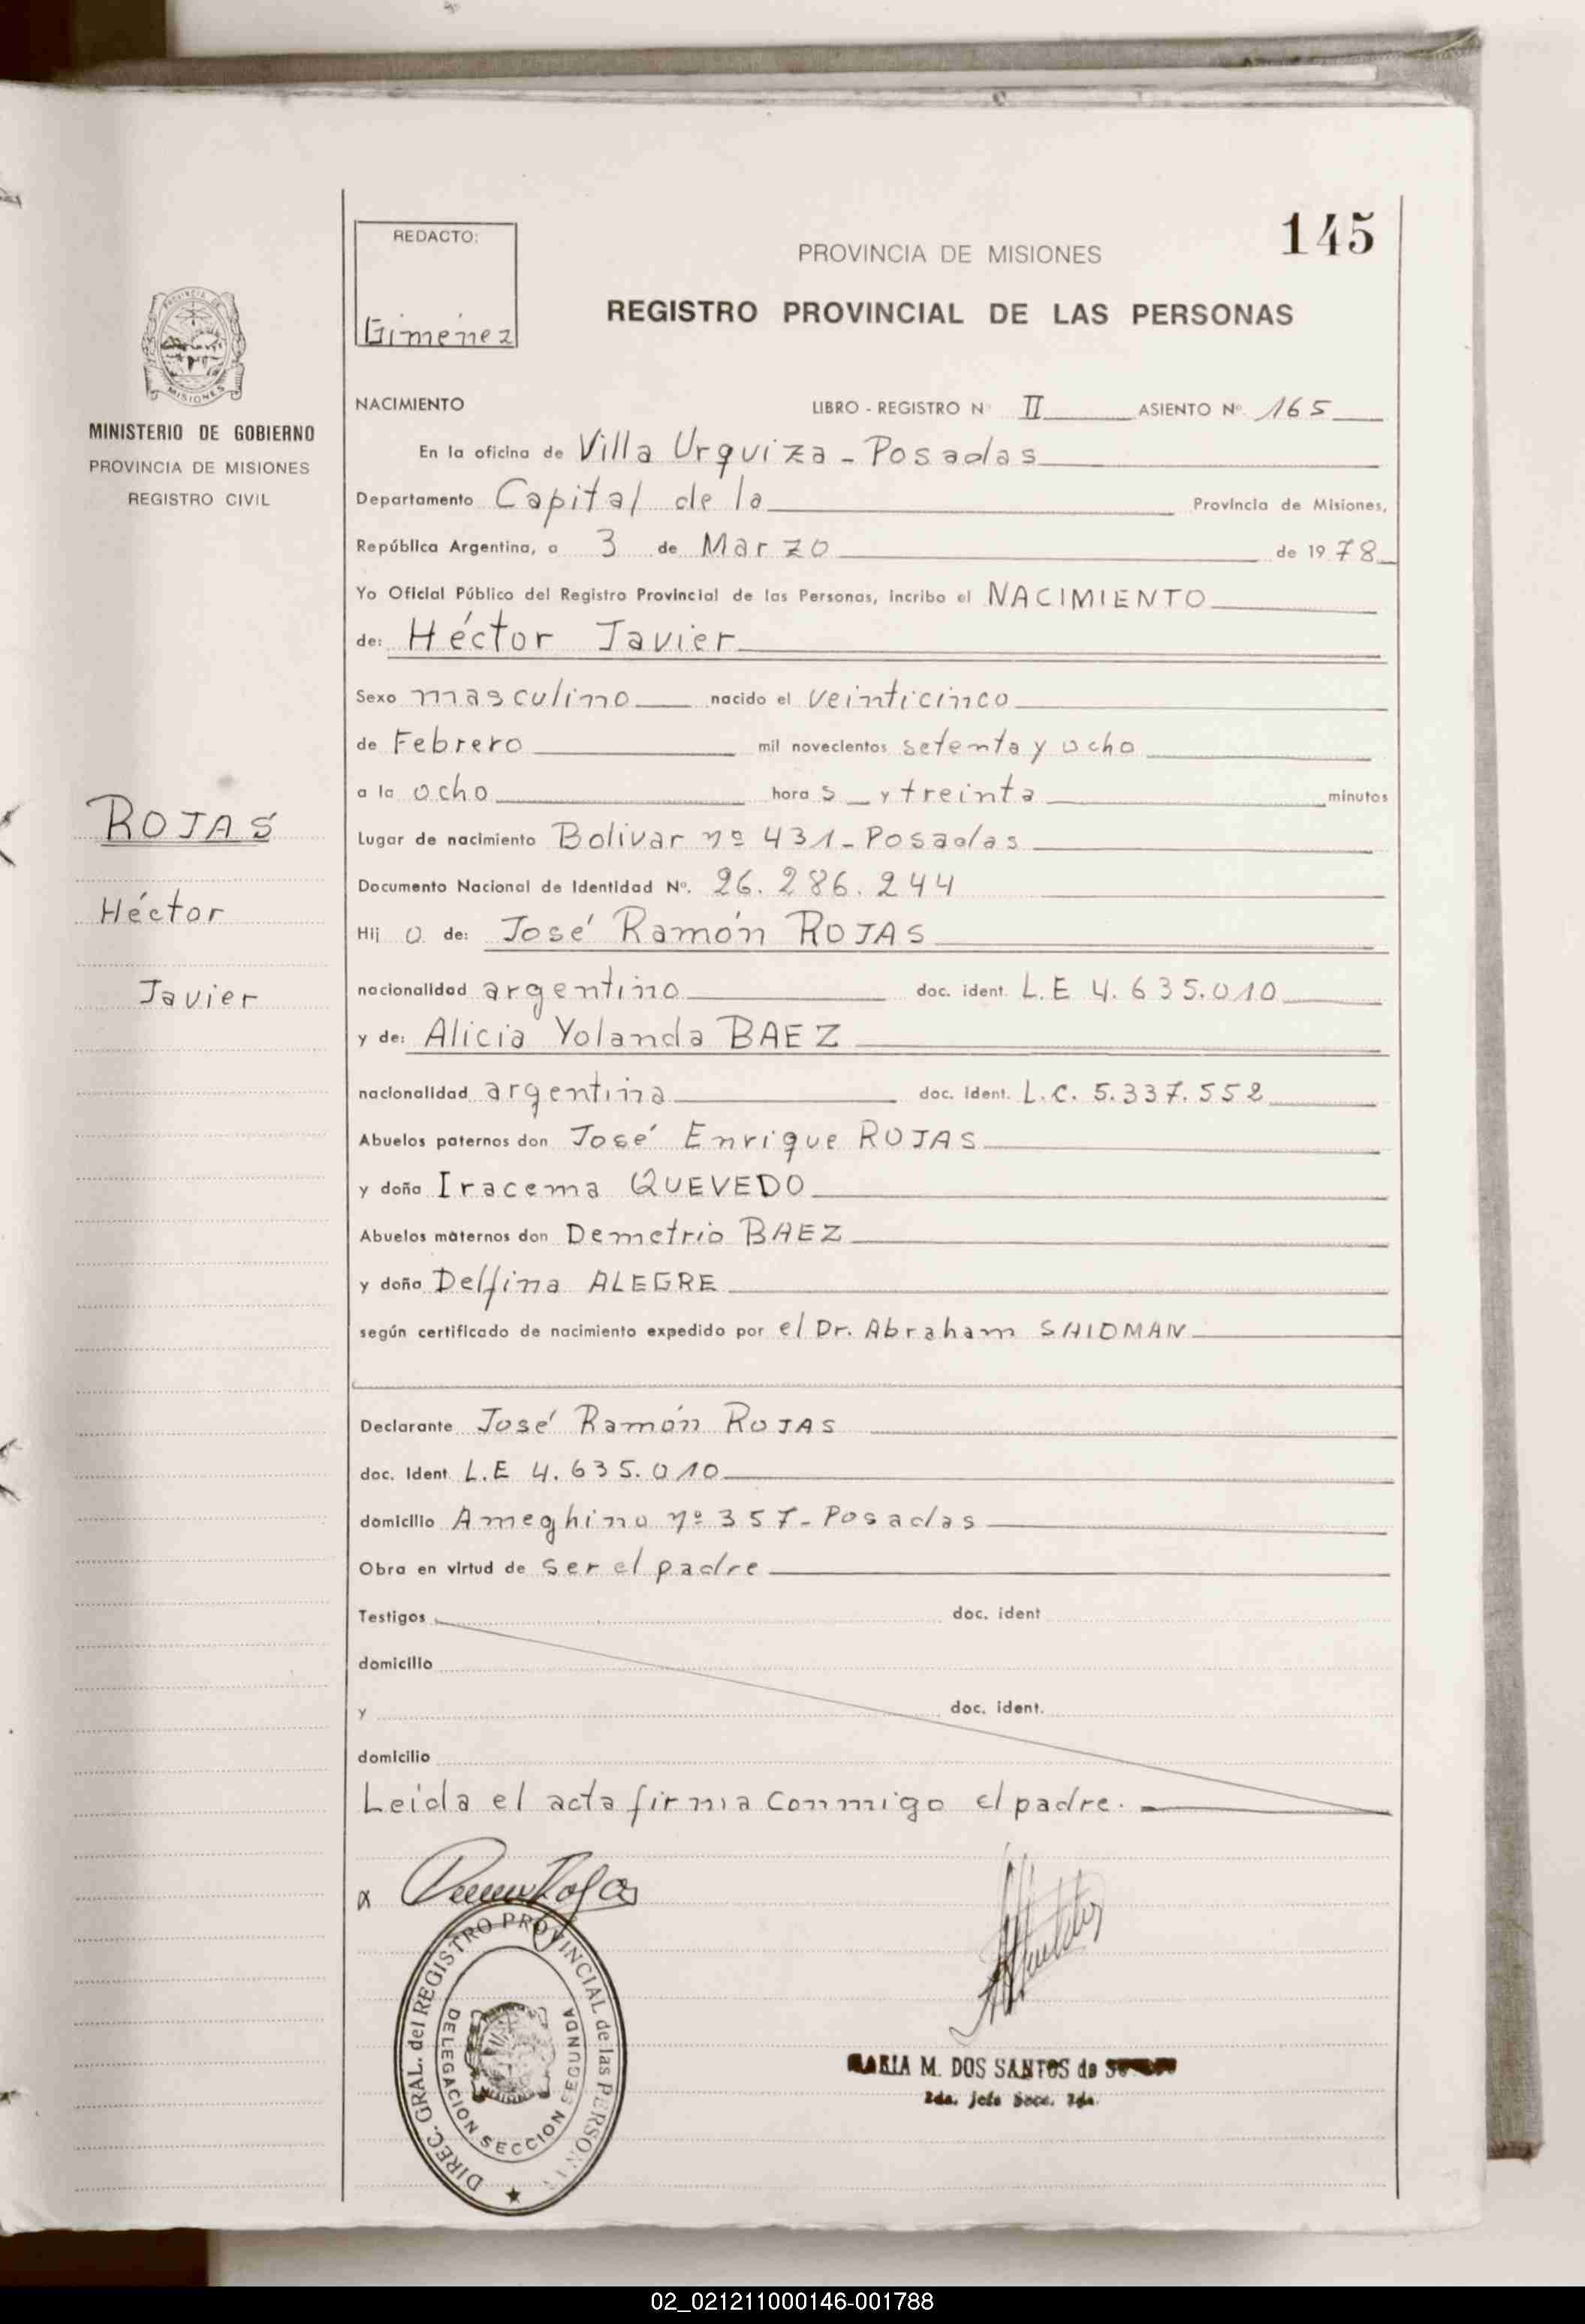 145
REDACTO:
Gimenez
PROVINCIA DE MISIONES
REGISTRO PROVINCIAL DE LAS PERSONAS
PROVINCIA DE
MISIONES
MINISTERIO DE GOBIERNO
PROVINCIA DE MISIONES
REGISTRO CIVIL
ROJAS
Héctor
Javier
NACIMIENTO LIBRO - REGISTRO Nº II ASIENTO Nº 165
En la oficina de Villa Urquiza - Posadas
Departamento Capital de la Provincia de Misiones,
República Argentina, a 3 de Marzo de 1978
Yo Oficial Público del Registro Provincial de las Personas, incribo el NACIMIENTO
de: Héctor Javier
Sexo masculino nacido el veinticinco
de Febrero mil novecientos setenta y ocho
a la ocho hora s y treinta minutos
Lugar de nacimiento Bolivar nº 431 - Posadas
Documento Nacional de Identidad Nº. 26.286.244
Hij o de: José Ramón ROJAS
nacionalidad argentino doc. ident. L.E 4.635.010
y de: Alicia Yolanda BAEZ
nacionalidad argentina doc. ident. L.C. 5.337.552
Abuelos paternos don José Enrique ROJAS
y doña Iracema QUEVEDO
Abuelos maternos don Demetrio BAEZ
y doña Delfina ALEGRE
según certificado de nacimiento expedido por el Dr. Abraham SAIDMAN
Declarante José Ramón ROJAS
doc. Ident. L.E 4.635.010
domicilio Ameghino nº 357 - Posadas
Obra en virtud de ser el padre
Testigos doc. ident
domicilio
y doc. ident.
domicilio
Leida el acta firma conmigo el padre.
DIREC. GRAL. del REGISTRO PROVINCIAL de las
DELEGACION SECCION SEGUNDA
MARIA M. DOS SANTOS de
2da. Jefe Secc. 2da.
02_021211000146-001788